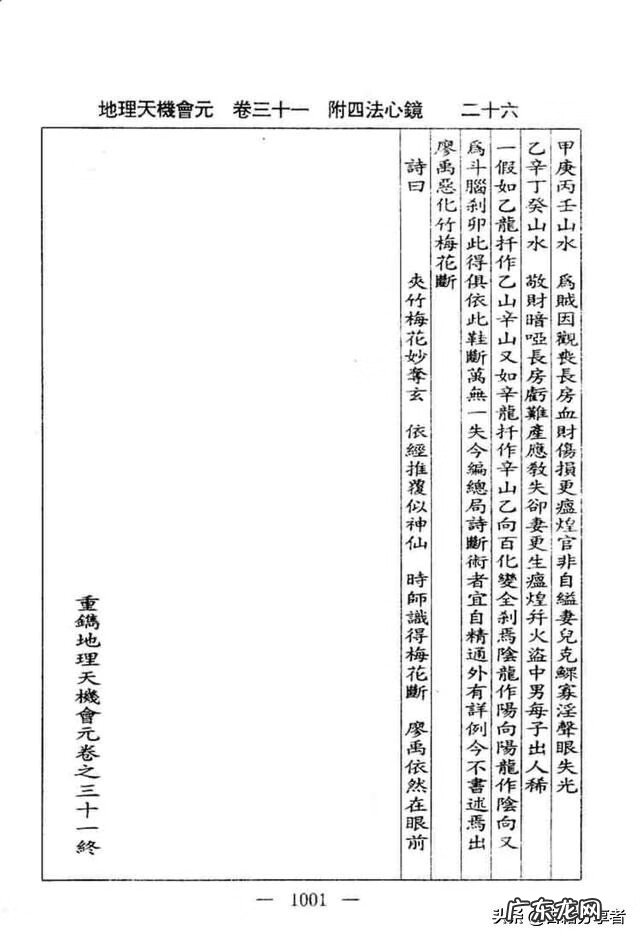 地理天機會元　卷三十一　附四法心鏡　二十六
甲庚丙壬山水　為賊因觀喪長房血財傷損更瘟煌官非自縊妻兒克鰥寡淫聲眼失光
乙辛丁癸山水　敬財暗啞長房虧難產應教失卻妻更生瘟煌幷火盜中男每子出人稀
一假如乙龍扦作乙山辛山又如辛龍扦作辛山乙向百化變全剎焉陰龍作陽向陽龍作陰向又
為斗腦剎卯此得俱依此鞋斷萬無一失今編總局詩斷術者宜自精通外有詳例今不書述焉出
廖禹惡化竹梅花斷
詩曰　夾竹梅花妙奪玄　依經推覆似神仙　時師識得梅花斷　廖禹依然在眼前
重鐫地理天機會元卷之三十一終
— 1001 —
头条@古籍分享者
广东龙网